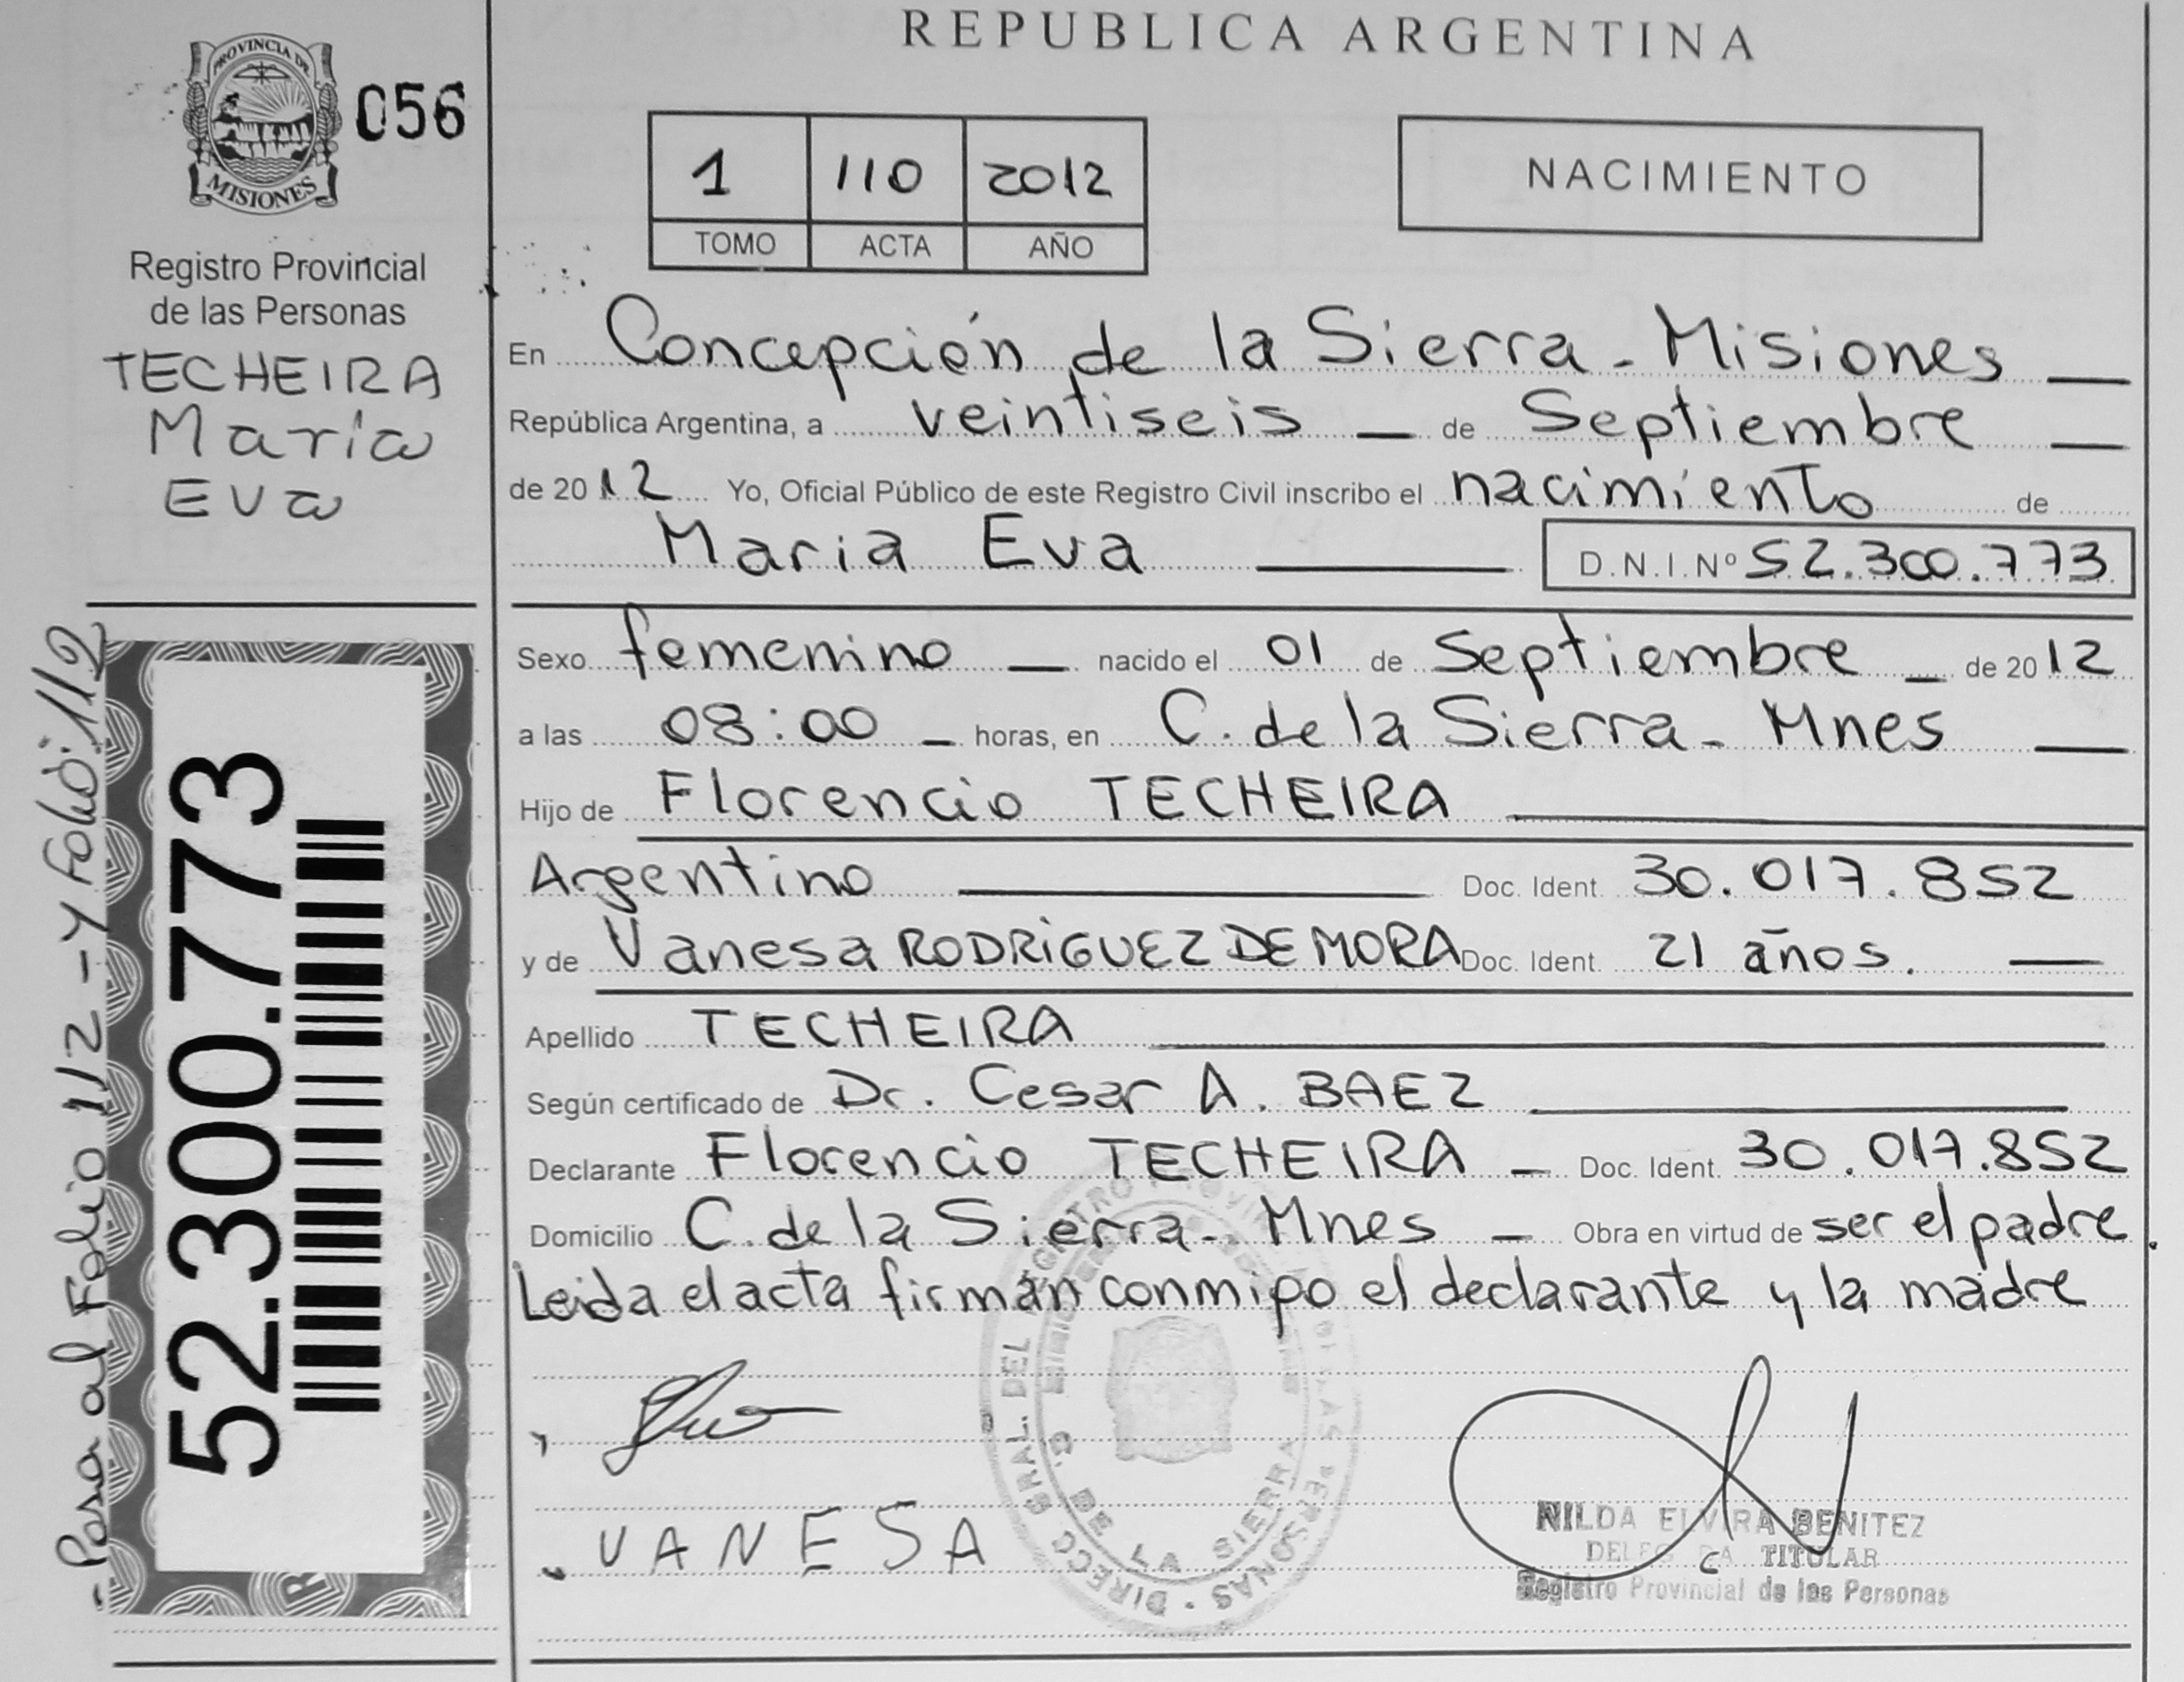 REPUBLICA ARGENTINA
PROVINCIA DE
MISIONES
056
Registro Provincial
de las Personas
TECHEIRA
María
Eva
1 110 2012
TOMO ACTA AÑO
NACIMIENTO
En Concepción de la Sierra - Misiones
República Argentina, a veintiseis de Septiembre
de 2012 Yo, Oficial Público de este Registro Civil inscribo el nacimiento de
Maria Eva D.N.I.Nº 52.300.773
Sexo femenino nacido el 01 de Septiembre de 2012
a las 08:00 horas, en C. de la Sierra - Mnes
Hijo de Florencio TECHEIRA
Argentino Doc. Ident. 30.017.852
y de Vanesa RODRIGUEZ DE MORA Doc. Ident. 21 años.
Apellido TECHEIRA
Según certificado de Dr. Cesar A. BAEZ
Declarante Florencio TECHEIRA Doc. Ident. 30.017.852
Domicilio C. de la Sierra - Mnes Obra en virtud de ser el padre.
Leida el acta firman conmigo el declarante y la madre
VANESA
NILDA ELVIRA BENITEZ
TITULAR
Registro Provincial de las Personas
DIRECC GRAL. DEL REGISTRO PROVINCIAL DE LAS PERSONAS
C. DE LA SIERRA
52.300.773
- Pasa al Folio 112 - y Folio: 112